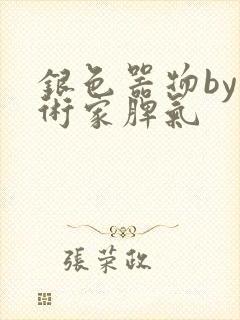 銀色器物by
術家脾氣
張荣政